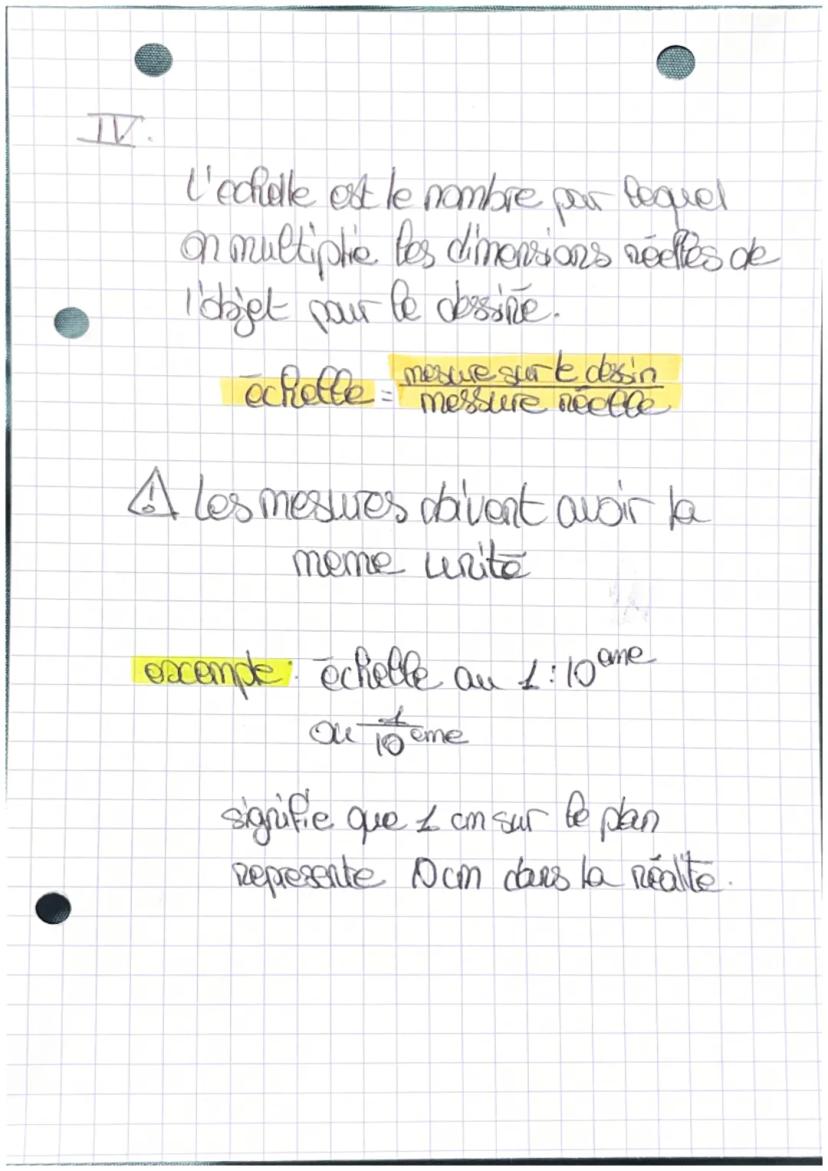 IV.
L'echelle est le nombre par lequel
on multiplie les dimensions réelles de
l'objet pour le dessiné.
échelle = mesure sur le dessin / messure réelle
⚠ Les mesures doivent avoir la
meme unité
exemple : échelle au 1:10 eme
ou 1/10 eme
signifie que 1 cm sur le plan
represente 10 cm dans la réalité.